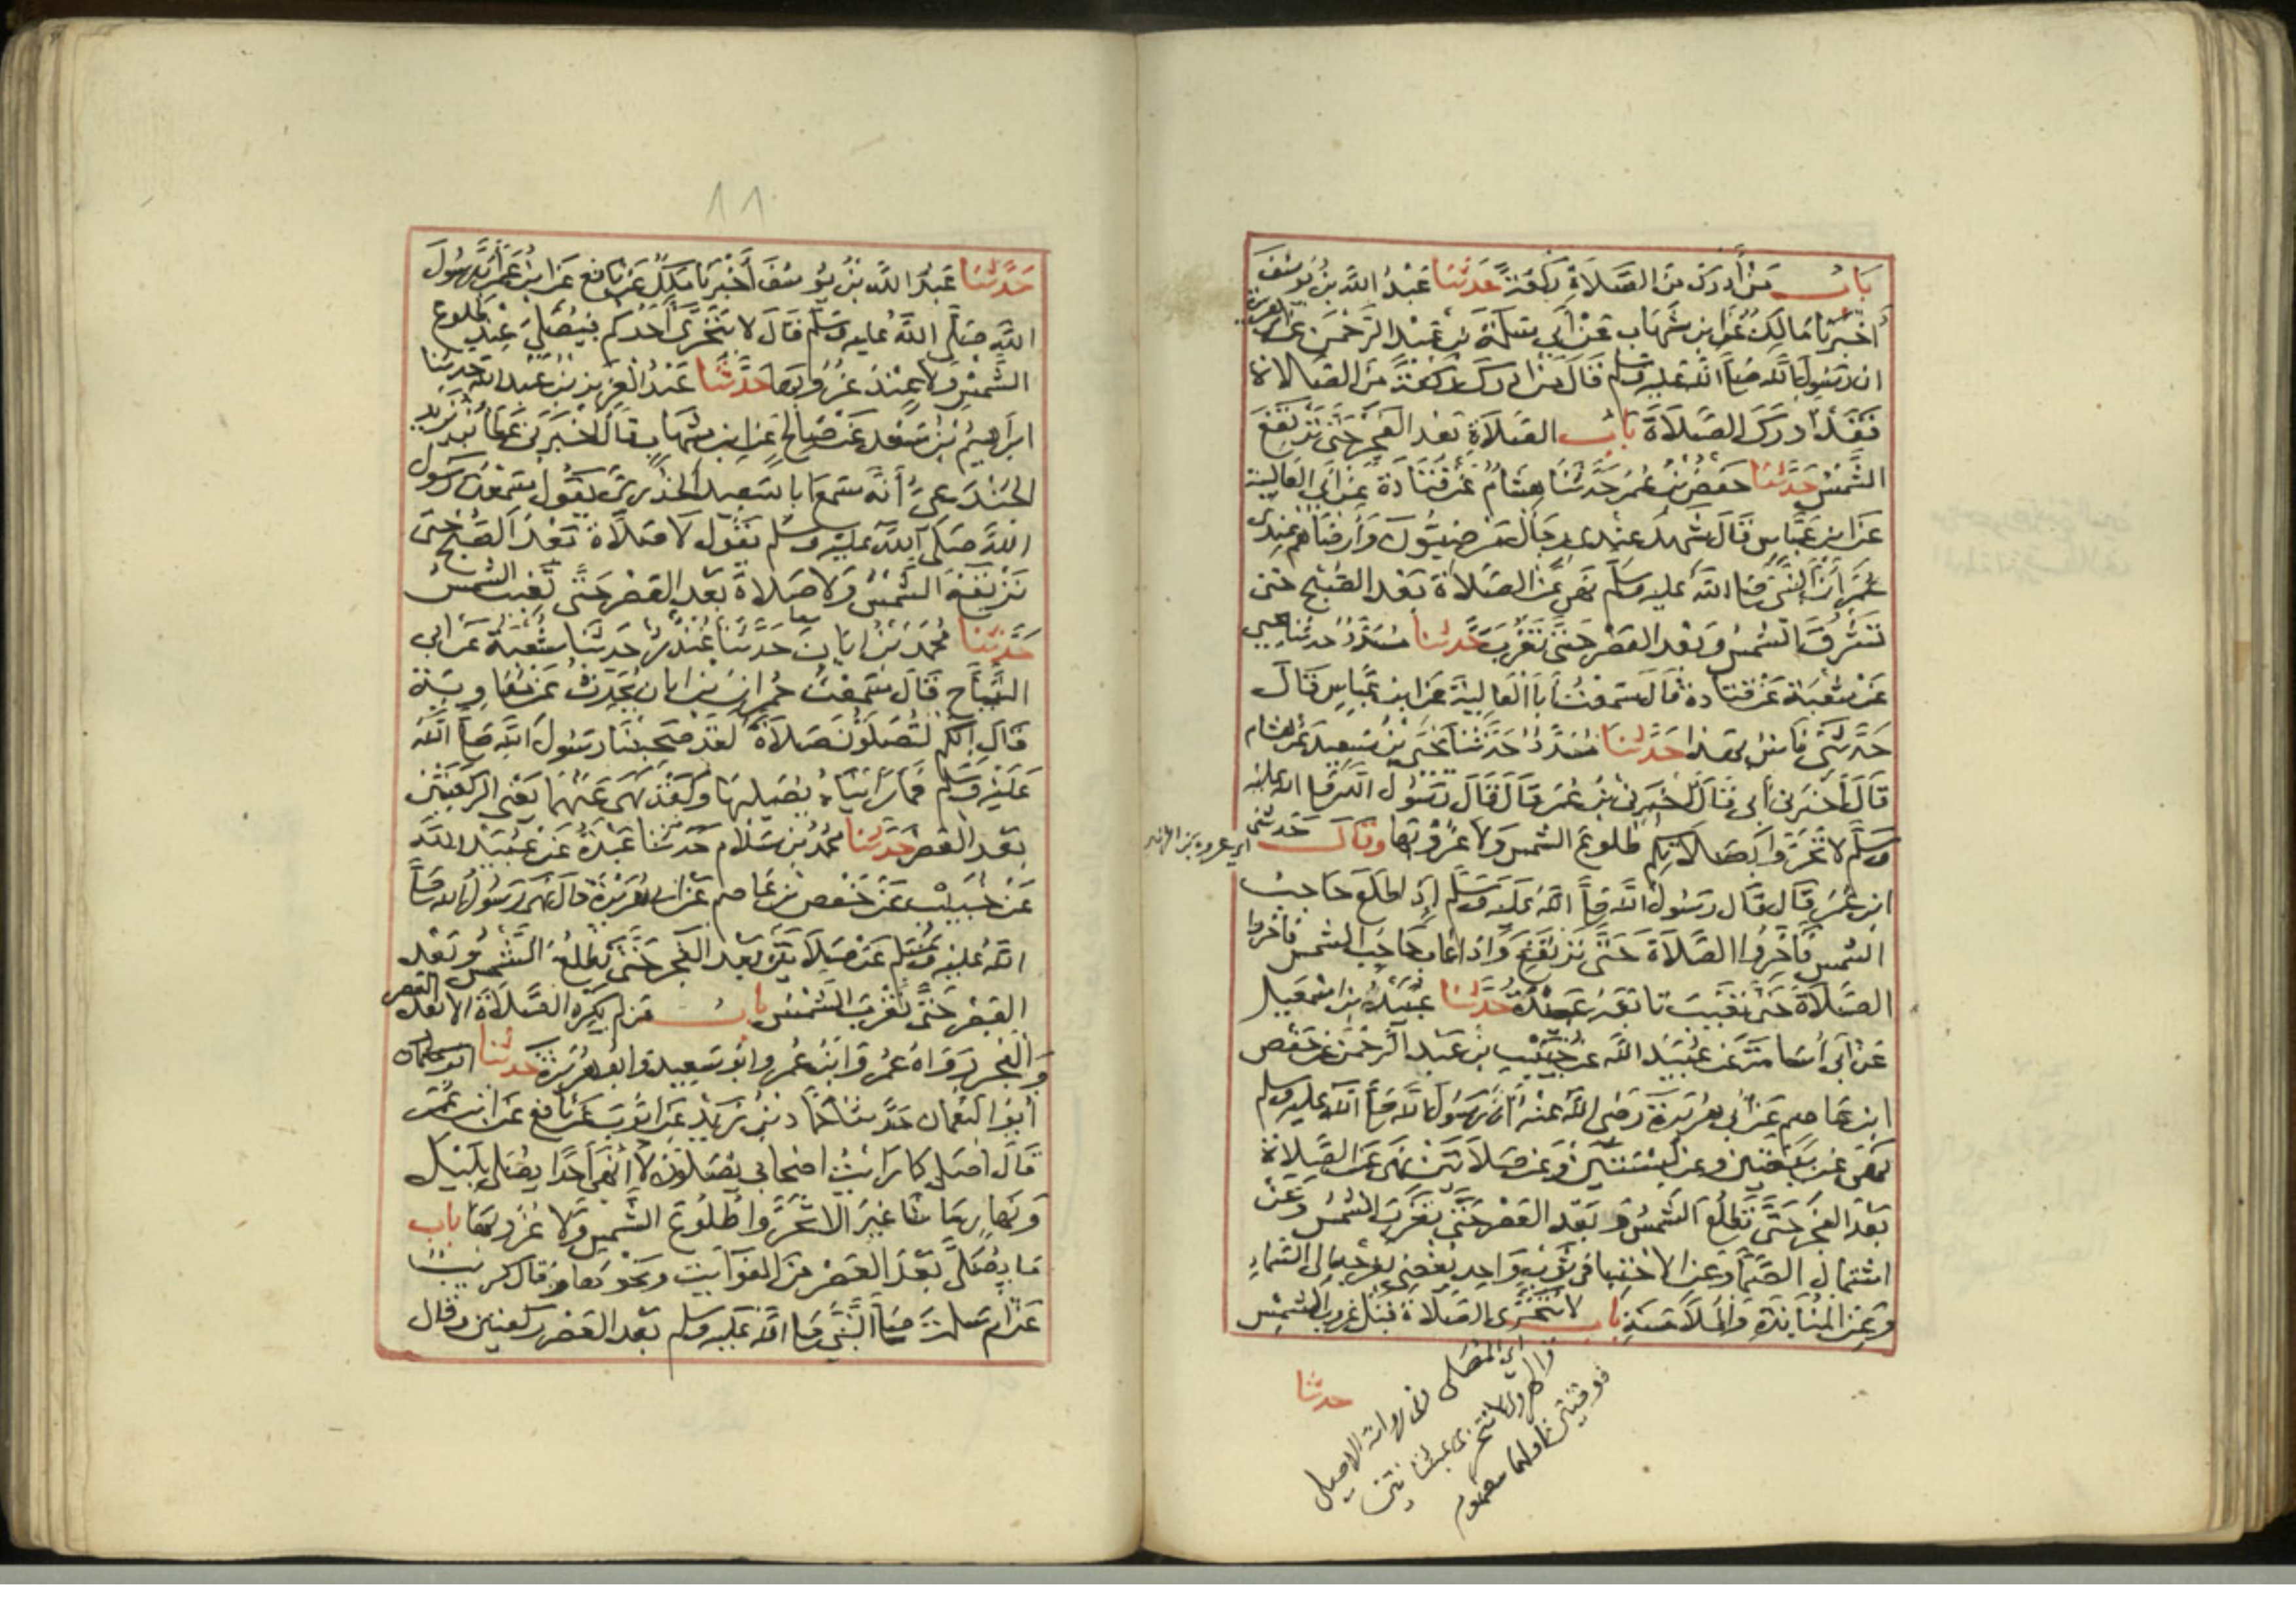 باب من أدرك من الصلاة ركعة حدثنا عبد الله بن يوسف
أخبرنا مالك عن ابن شهاب عن أبي سلمة بن عبد الرحمن عن أبي هريرة
ان رسول الله صلى الله عليه وسلم قال من ادرك ركعة من الصلاة
فقد أدرك الصلاة باب الصلاة بعد الفجر حتى ترتفع
الشمس حدثنا حفص بن عمر حدثنا هشام عن قتادة عن أبي العالية
عن ابن عباس قال شهد عندي رجال مرضيون وأرضاهم عندي
عمر أن النبي صلى الله عليه وسلم نهى عن الصلاة بعد الصبح حتى
تشرق الشمس وبعد العصر حتى تغرب حدثنا مسدد حدثنا يحيى
عن شعبة عن قتادة قال سمعت أبا العالية عن ابن عباس قال
حدثني ناس بهذا حدثنا مسدد حدثنا يحيى بن سعيد عن هشام
قال أخبرني أبي قال أخبرني ابن عمر قال قال رسول الله صلى الله عليه
وسلم لا تحروا بصلاتكم طلوع الشمس ولا غروبها وقال حدثني
اي عروة بن الزبير
ابن عمر قال قال رسول الله صلى الله عليه وسلم إذ اطلع حاجب
الشمس فأخروا الصلاة حتى ترتفع واذا غاب حاجب الشمس فاخروا
الصلاة حتى تغيب تابعه عبدة حدثنا عبيد بن اسمعيل
عن أبي أسامة عن عبيد الله عن خبيب بن عبد الرحمن عن حفص
ابن عاصم عن أبي هريرة رضي الله عنه أن رسول الله صلى الله عليه وسلم
نهى عن بيعتين وعن لبستين وعن صلاتين نهى عن الصلاة
بعد الفجر حتى تطلع الشمس وبعد العصر حتى تغرب الشمس وعن
اشتمال الصماء وعن الاحتبا في ثوب واحد يفضي بفرجه الى السماء
وعن المنابذة والملامسة باب لا تتحرى الصلاة قبل غروب الشمس
اي المصلى في رواية الاصيلي
حدثنا
حدثنا عبد الله بن يوسف أخبرنا مالك عن نافع عن ابن عمر أن رسول
الله صلى الله عليه وسلم قال لا يتحرى أحدكم فيصلي عند طلوع
الشمس ولا عند غروبها حدثنا عبد العزيز بن عبد الله حدثنا
ابراهيم بن سعد عن صالح عن ابن شهاب قال اخبرني عطا بن يزيد
الجندعي أنه سمع ابا سعيد الخدري يقول سمعت رسول
الله صلى الله عليه وسلم يقول لا صلاة بعد الصبح حتى
ترتفع الشمس ولا صلاة بعد العصر حتى تغيب الشمس
حدثنا محمد بن ابان حدثنا غندر حدثنا شعبة عن ابي
التياح قال سمعت حمران بن ابان يحدث عن معاوية
قال انكم لتصلون صلاة لقد صحبنا رسول الله صلى الله
عليه وسلم فما رأيناه يصليها ولقد نهى عنهما يعني الركعتين
بعد العصر حدثنا محمد بن سلام حدثنا عبدة عن عبيد الله
عن خبيب عن حفص بن عاصم عن ابي هريرة قال نهى رسول الله صلى
الله عليه وسلم عن صلاتين بعد الفجر حتى تطلع الشمس وبعد
العصر حتى تغرب الشمس باب من لم يكره الصلاة الا بعد العصر
والفجر رواه عمر وابن عمر وابو سعيد وابو هريرة حدثنا
أبو النعمان حدثنا حماد بن زيد عن ايوب عن نافع عن ابن عمر
قال اصلي كما رأيت اصحابي يصلون لا أنهى أحدا يصلي بليل
ونهار ما شا غير الا تحروا طلوع الشمس ولا غروبها باب
ما يصلى بعد العصر من الفوايت ونحوها وقال كريب
عن ام سلمة صلى النبي صلى الله عليه وسلم بعد العصر ركعتين وقال